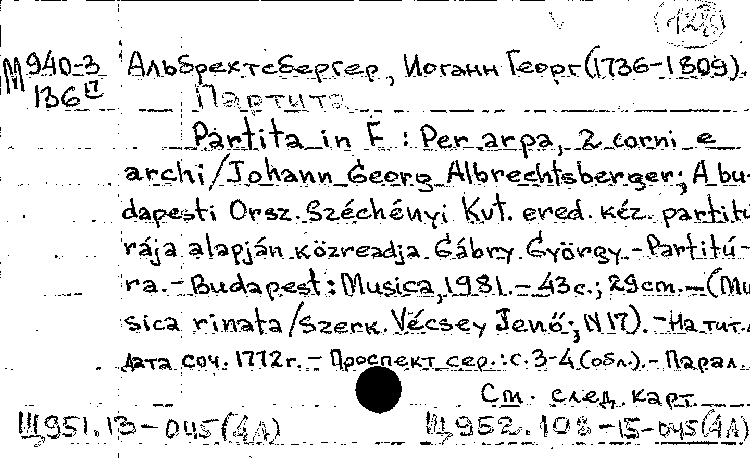 128
М 940-3 Альбрехтсбергер, Иоганн Георг (1736-1809).
136 17 Партита
Partita in F : Per arpa, 2 corni e
archi / Johann Georg Albrechtsberger; A bu-
dapesti Orsz. Széchényi Kvt. ered. kéz. partitú
rája alapján közreadja Gábry György. - Partitú-
ra. - Budapest : Musica, 1981. - 43 с.; 29 cm. - (Mu
sica rinata / Szerk. Vécsey Jenő; N 17). - На тит.
дата соч. 1772 г. - Проспект сер.: с. 3-4 (обл.). - Парал.
См. след. карт.
Щ951.13-045(4А) Щ952.108-15-045(4А)